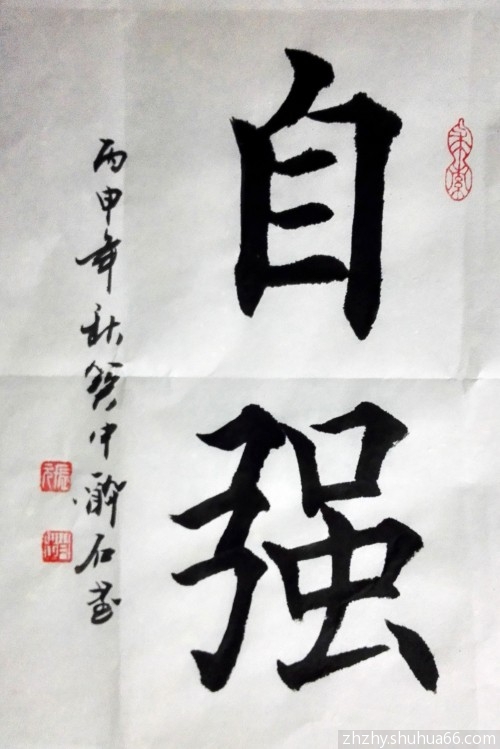 自强
丙申年秋癸中醉石书
zhzhy.shuhua66.com